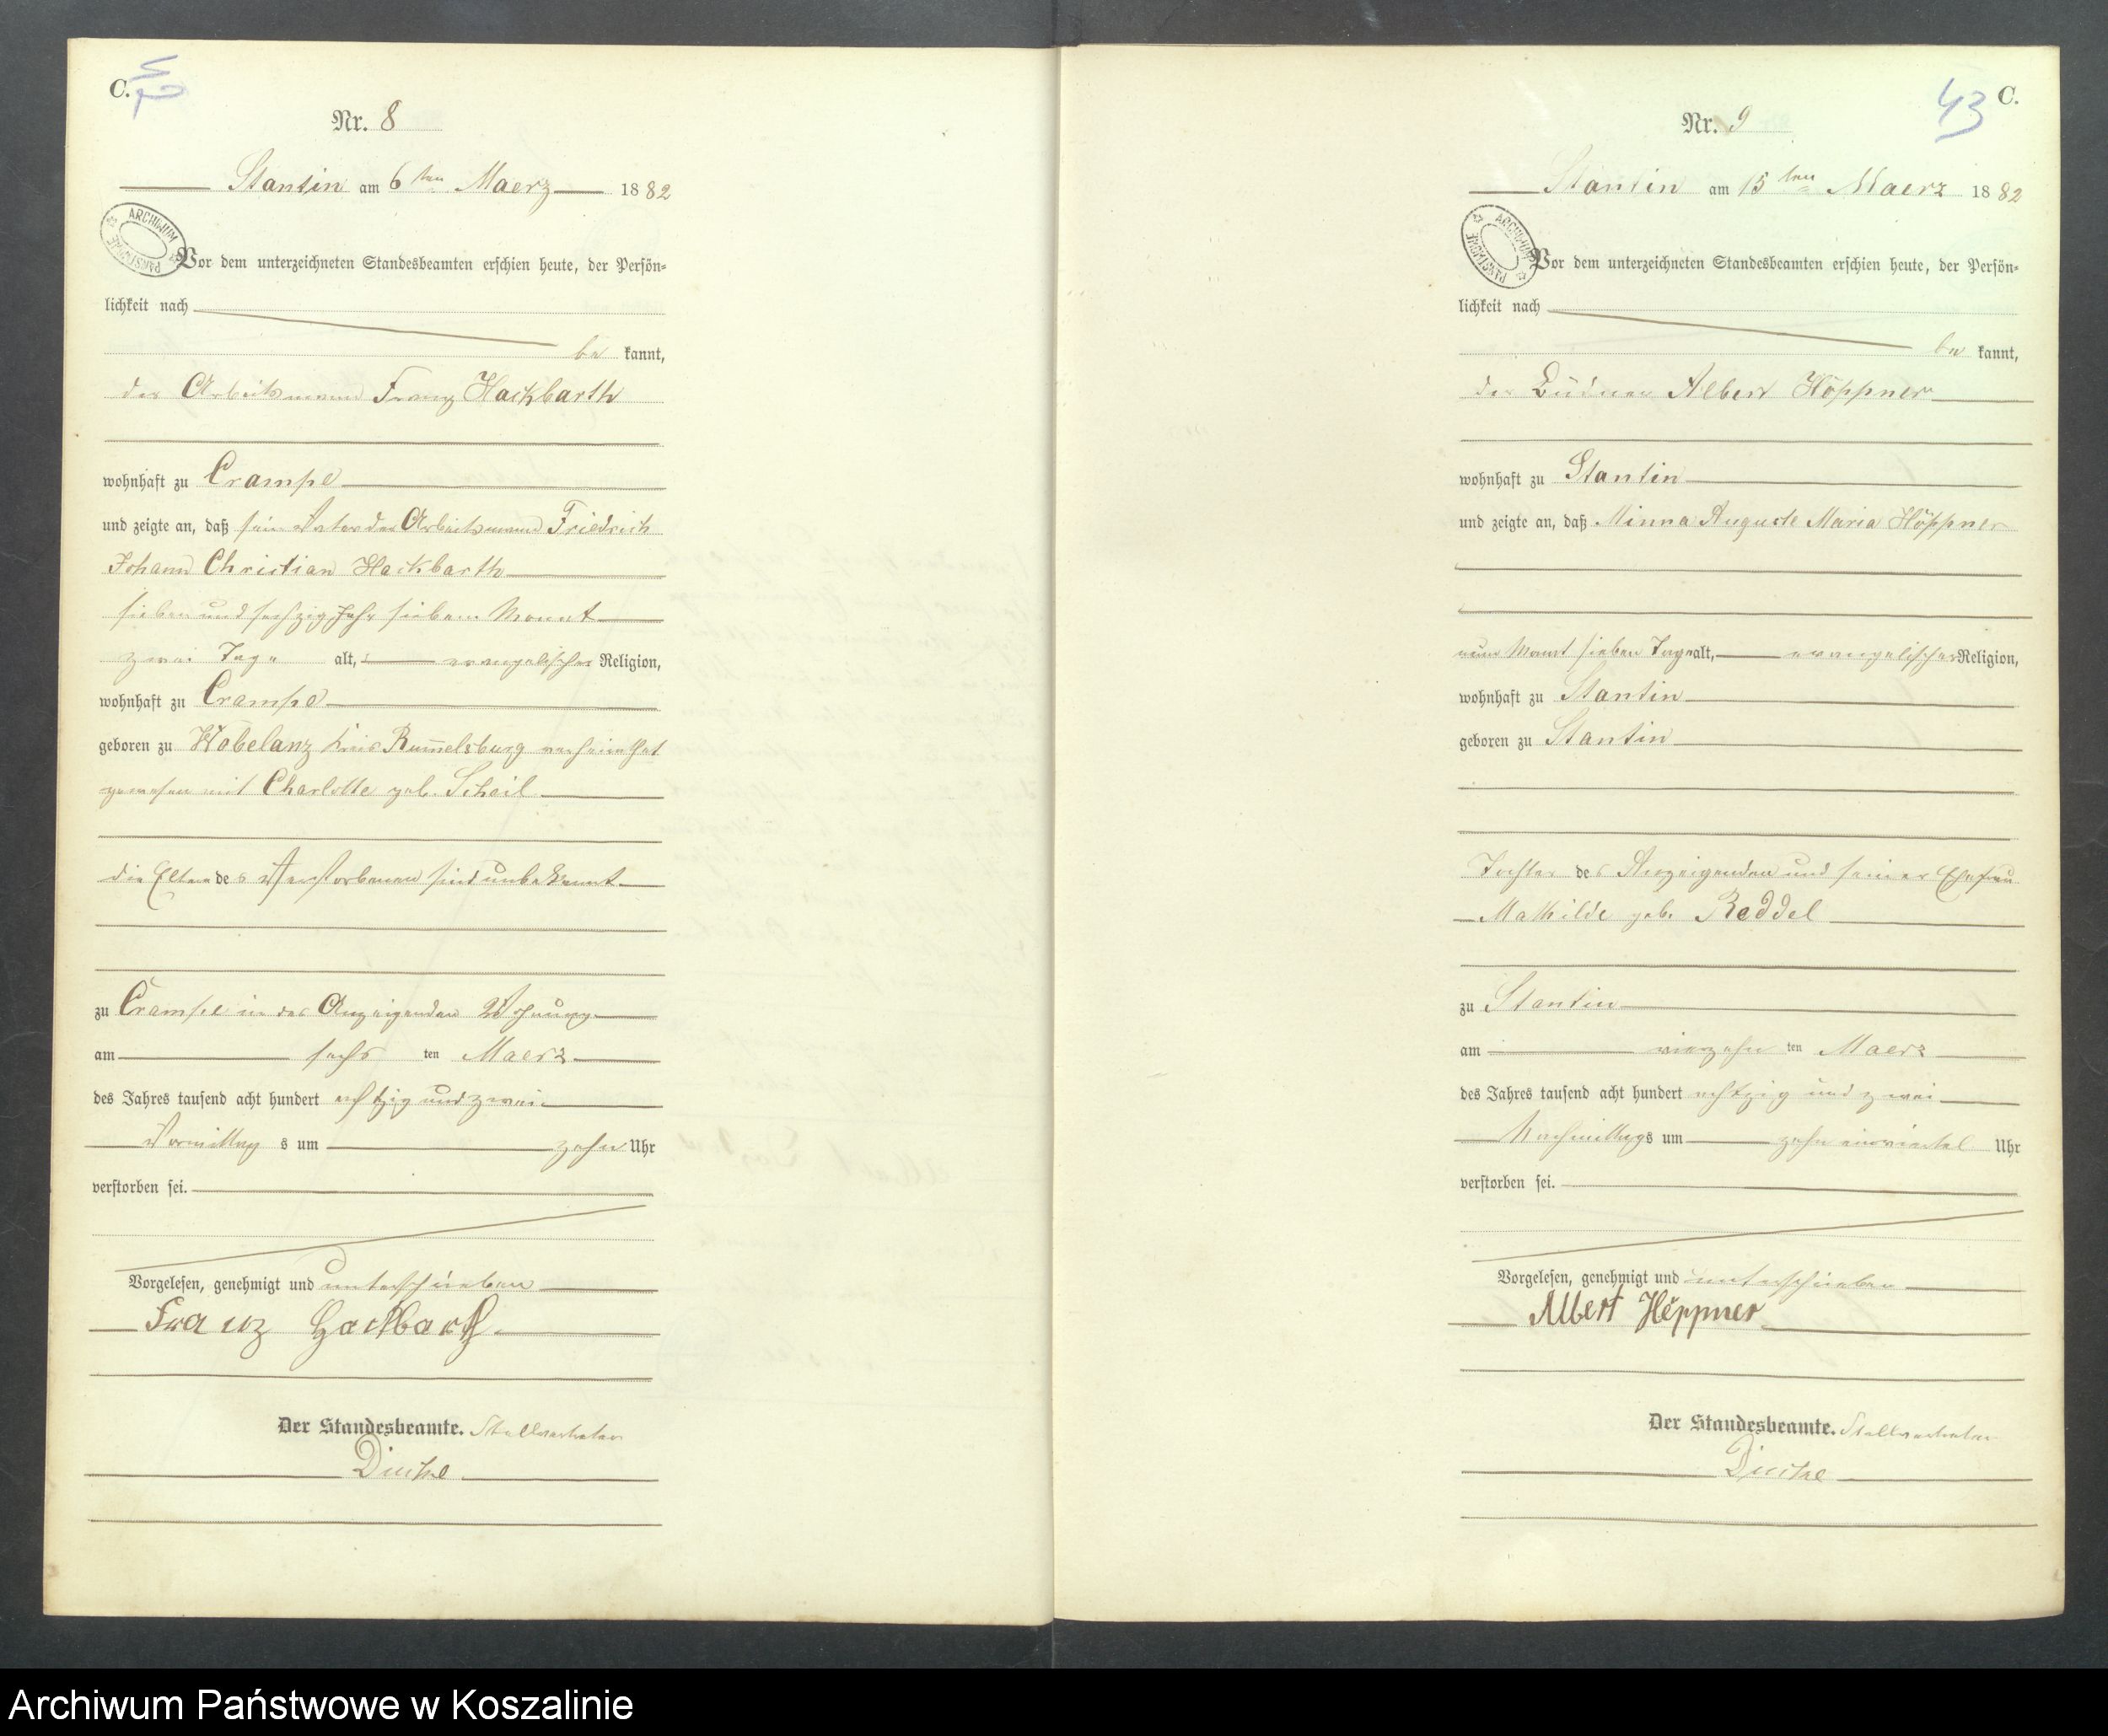 C.
Nr. 8
Stantin am 6ten Maerz 1882
ARCHIWUM PAŃSTWOWE
Vor dem unterzeichneten Standesbeamten erschien heute, der Persön-
lichkeit nach
be kannt,
der Arbeitsmann Franz Hackbarth
wohnhaft zu Crampe
und zeigte an, daß sein Vater der Arbeitsmann Friedrich
Johann Christian Hackbarth
sieben und sechzig Jahr sieben Monat
zwei Tage alt, evangelischer Religion,
wohnhaft zu Crampe
geboren zu Wobelanz Kreis Rum̄elsburg verheirathet
gewesen mit Charlotte geb. Scheil
die Eltern des Verstorbenen sind unbekannt
zu Crampe in des Anzeigenden Wohnung
am sechs ten Maerz
des Jahres tausend acht hundert achtzig und zwei
Vormittag s um zehn Uhr
verstorben sei.
Vorgelesen, genehmigt und unterschrieben
Franz Hackbarth
Der Standesbeamte. Stellvertreter
C.
43
Nr. 9
Stantin am 15ten Maerz 1882
ARCHIWUM PAŃSTWOWE
Vor dem unterzeichneten Standesbeamten erschien heute, der Persön-
lichkeit nach
be kannt,
der Büdner Albert Höppner
wohnhaft zu Stantin
und zeigte an, daß Minna Auguste Maria Höppner
Monat sieben Tage alt, evangelischer Religion,
wohnhaft zu Stantin
geboren zu Stantin
Tochter des Anzeigenden und seiner Ehefrau
Mathilde geb. Reddel
zu Stantin
am vierzehn ten Maerz
des Jahres tausend acht hundert achtzig und zwei
Nachmittags um zehn einviertel Uhr
verstorben sei.
Vorgelesen, genehmigt und unterschrieben
Albert Höppner
Der Standesbeamte. Stellvertreter
Archiwum Państwowe w Koszalinie